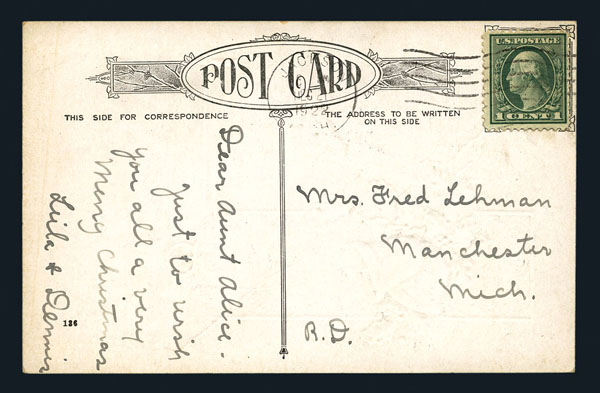 POST CARD
U.S. POSTAGE
1 CENT 1
1922
THIS SIDE FOR CORRESPONDENCE
THE ADDRESS TO BE WRITTEN
ON THIS SIDE
Dear Aunt Alice.
Just to wish
you all a very
Merry Christmas
Leila & Dennis
Mrs. Fred Lehman
Manchester
Mich.
R.D.
186